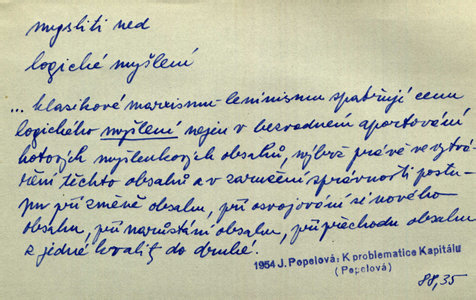 mysliti ned
logické myšlení
... klasikové marxismu-leninismu spatřují cenu
logického myšlení nejen v bezvadném aportování
hotových myšlenkových obsahů, nýbrž právě ve vytvá-
ření těchto obsahů a v zaručení správnosti postu-
pu při změně obsahu, při osvojování si nového
obsahu, při narůstání obsahu, při přechodu obsahu
z jedné kvality do druhé.
1954 J. Popelová: K problematice Kapitálu
(Popelová)
88,35